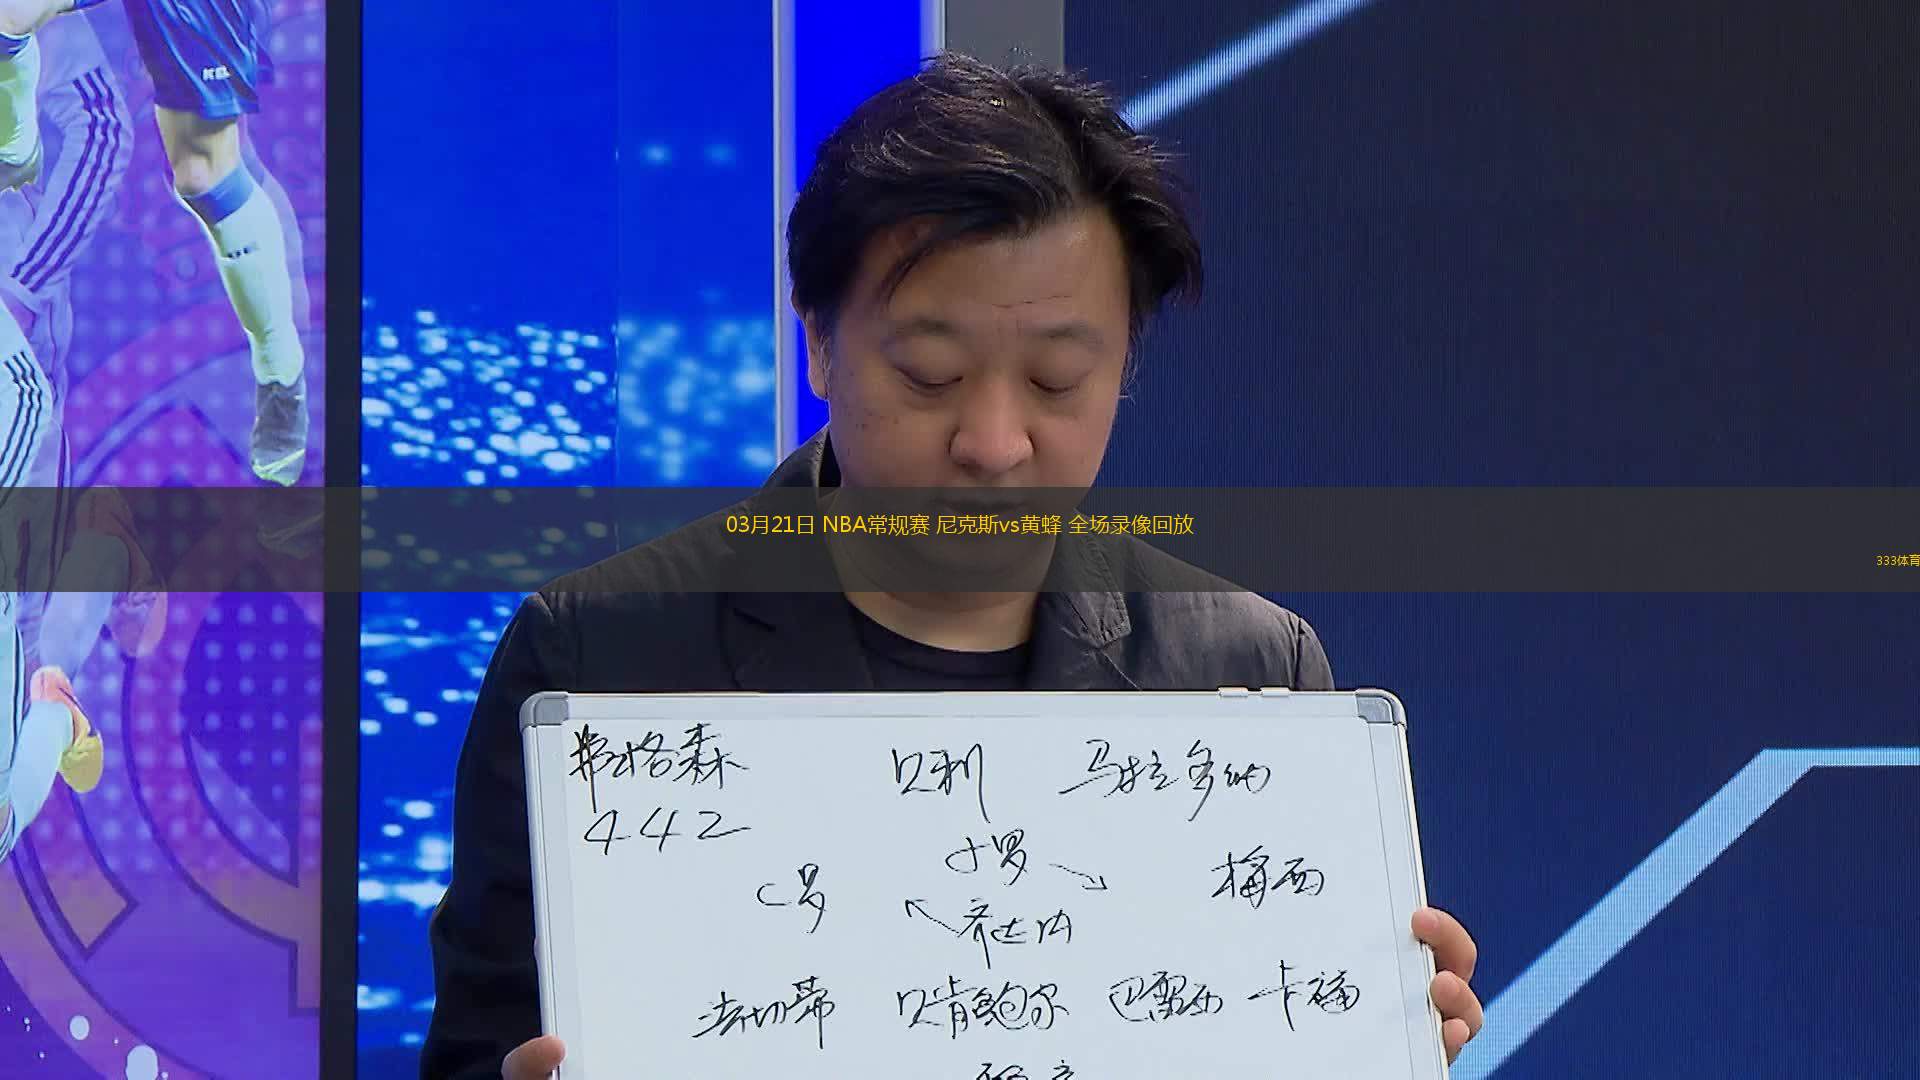 03月21日 NBA常规赛 尼克斯vs黄蜂 全场录像回放
333体育
弗格森 贝利 马拉多纳
442
小罗
C罗 梅西
齐达内
法切蒂 贝肯鲍尔 巴雷西 卡福